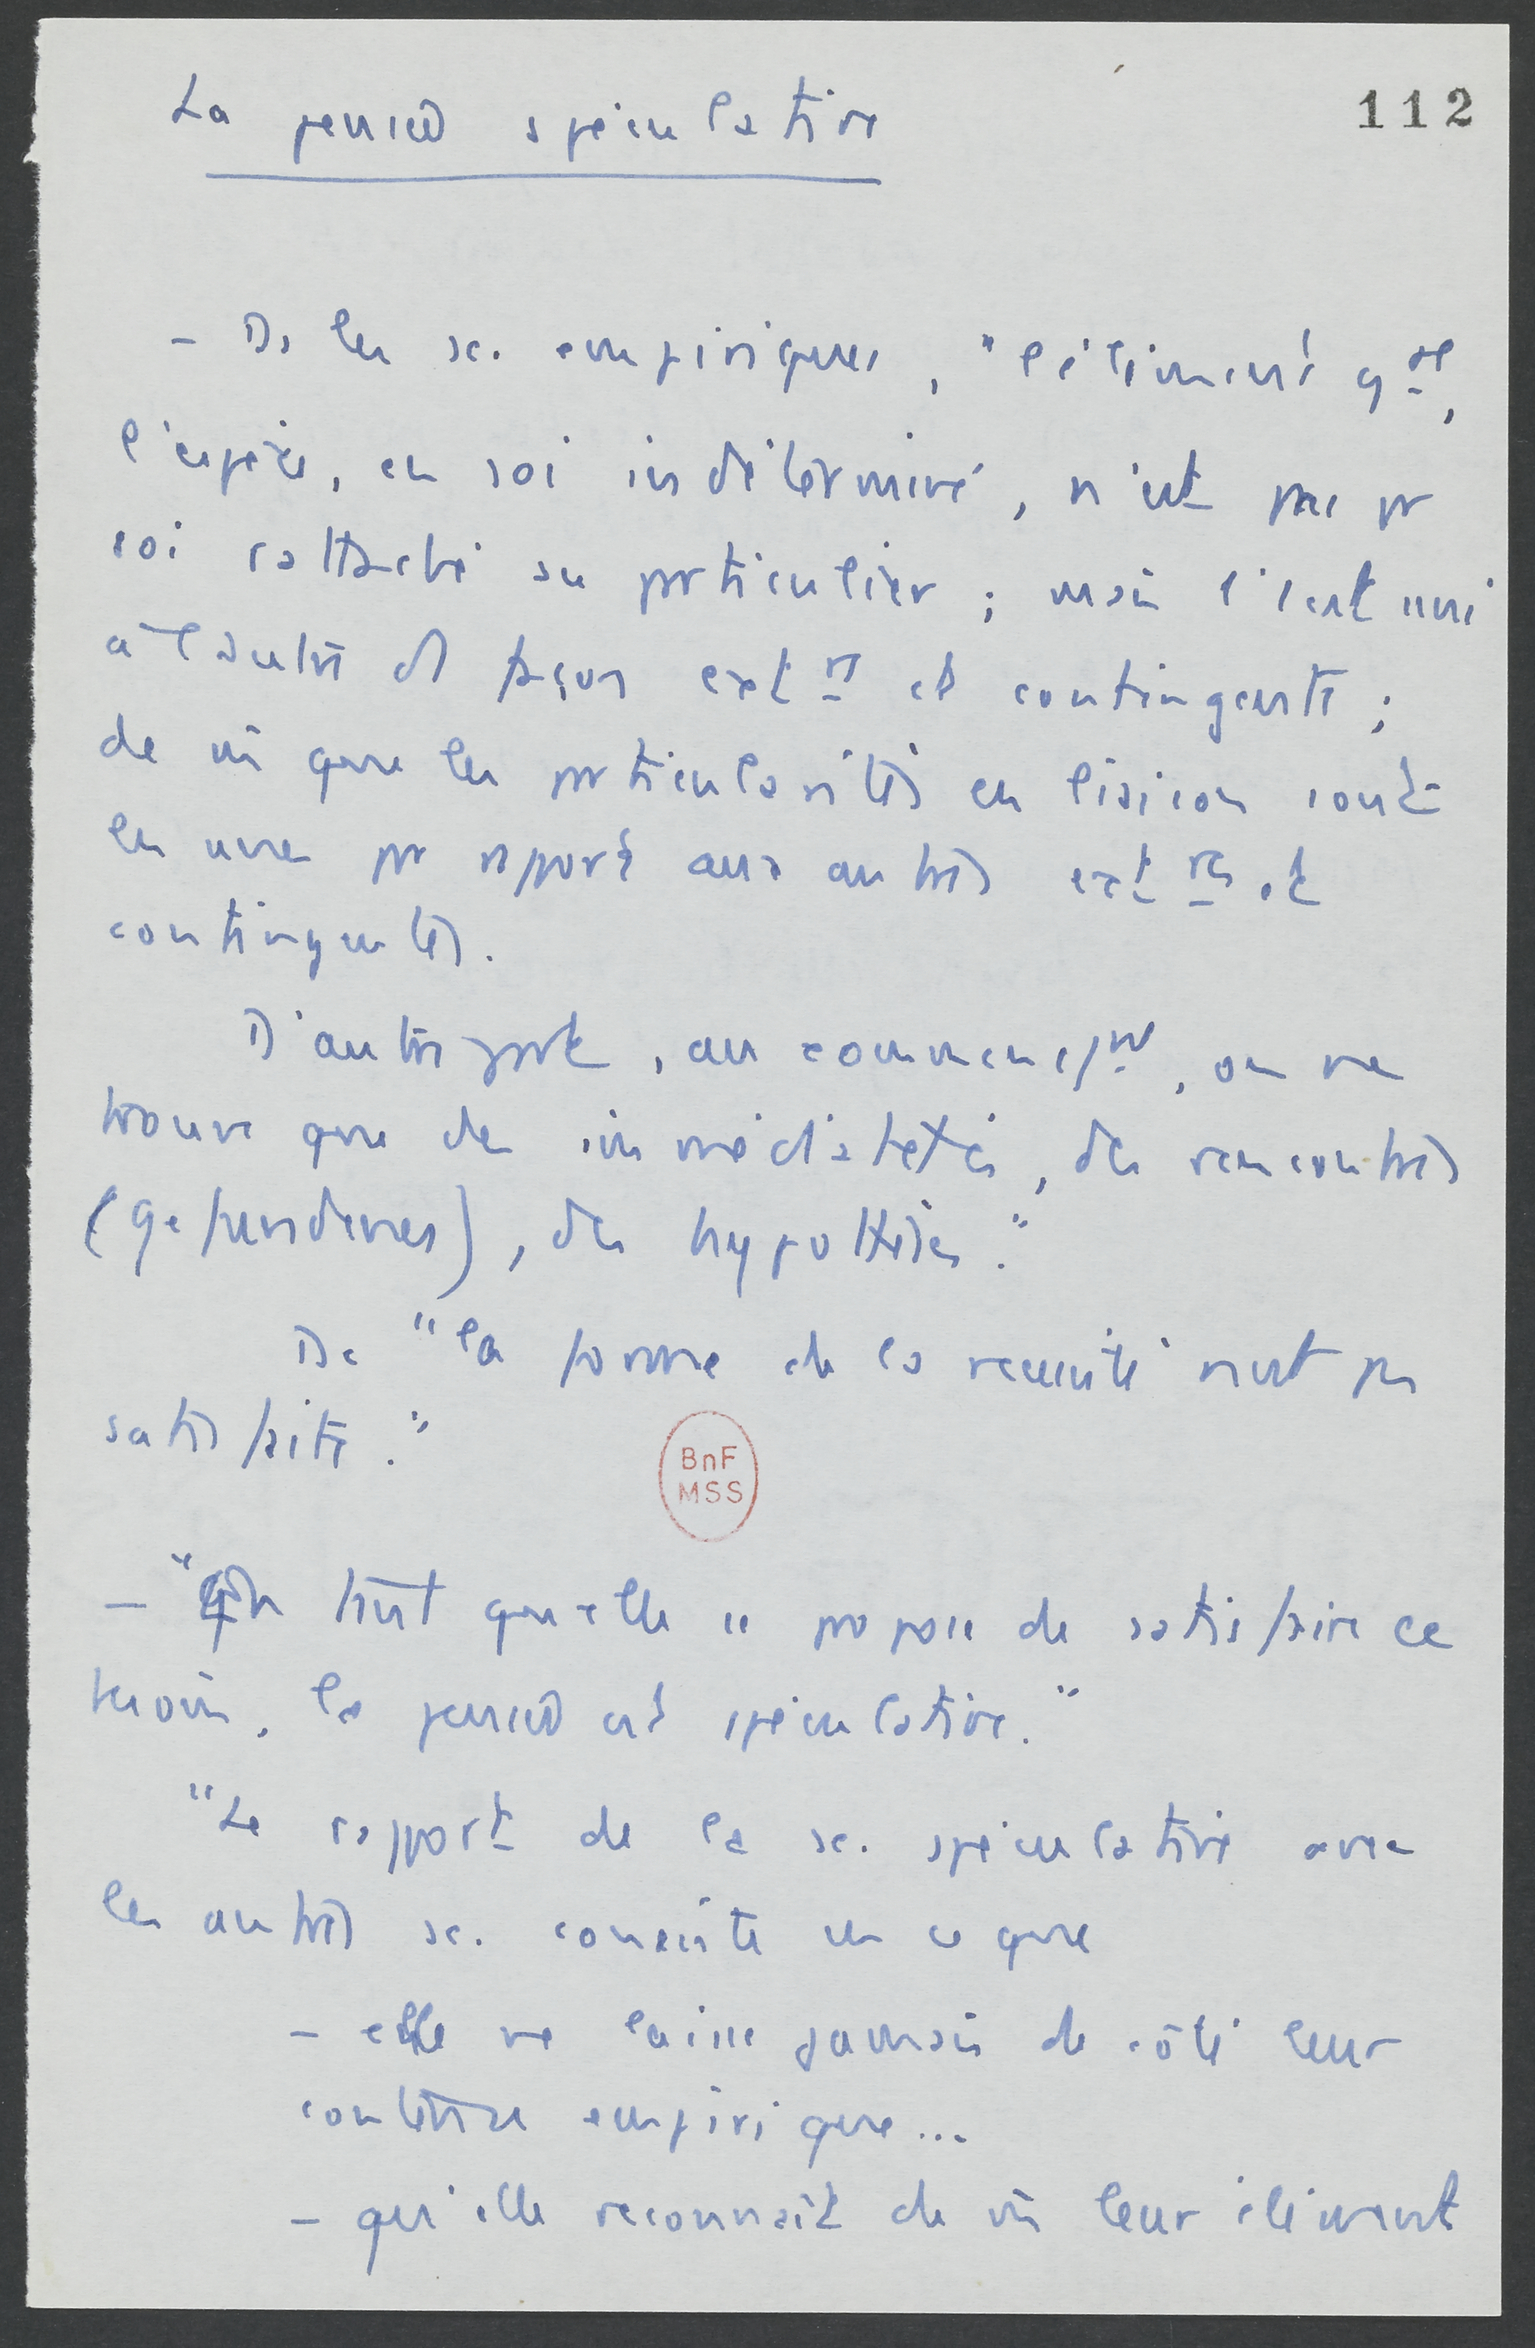 112
La pensée spéculative
- Ds les sc. empiriques, "l'élément gal,
l'espèce, en soi indéterminé, n'est pas pr
soi rattaché au particulier ; mais l'est uni
à l'autre de façon extre et contingente ;
de m̂ que les particularités en liaison sont
les unes pr rapport aux autres extres et
contingentes.
D'autre part, au commencemt, on ne
trouve que des immédiatetés, des rencontres
(gefundenes), des hypothèses."
Dc "la forme de la nécessité n'est pas
satisfaite."
BnF
MSS
- "En tant qu'elle se propose de satisfaire ce
besoin, la pensée est spéculative."
"Le rapport de la sc. spéculative avec
les autres sc. consiste en ce que
- elle ne laisse jamais de côté leur
contenu empirique...
- qu'elle reconnaît de m̂ leur élément